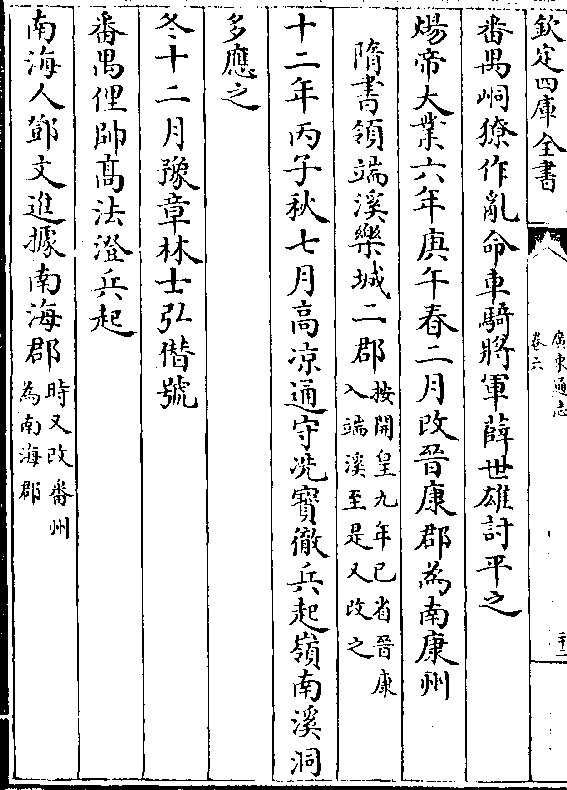 欽定四庫全書
廣東通志
卷六
番禺峒獠作亂命車騎將軍薛世雄討平之
煬帝大業六年庚午春二月改晉康郡為南康州
隋書領端溪樂城二郡按開皇九年已省晉康
入端溪至是又改之
十二年丙子秋七月高凉通守冼寳徹兵起嶺南溪洞
多應之
冬十二月豫章林士弘僭號
番禺俚帥髙法澄兵起
南海人鄧文進據南海郡時又改番州
為南海郡